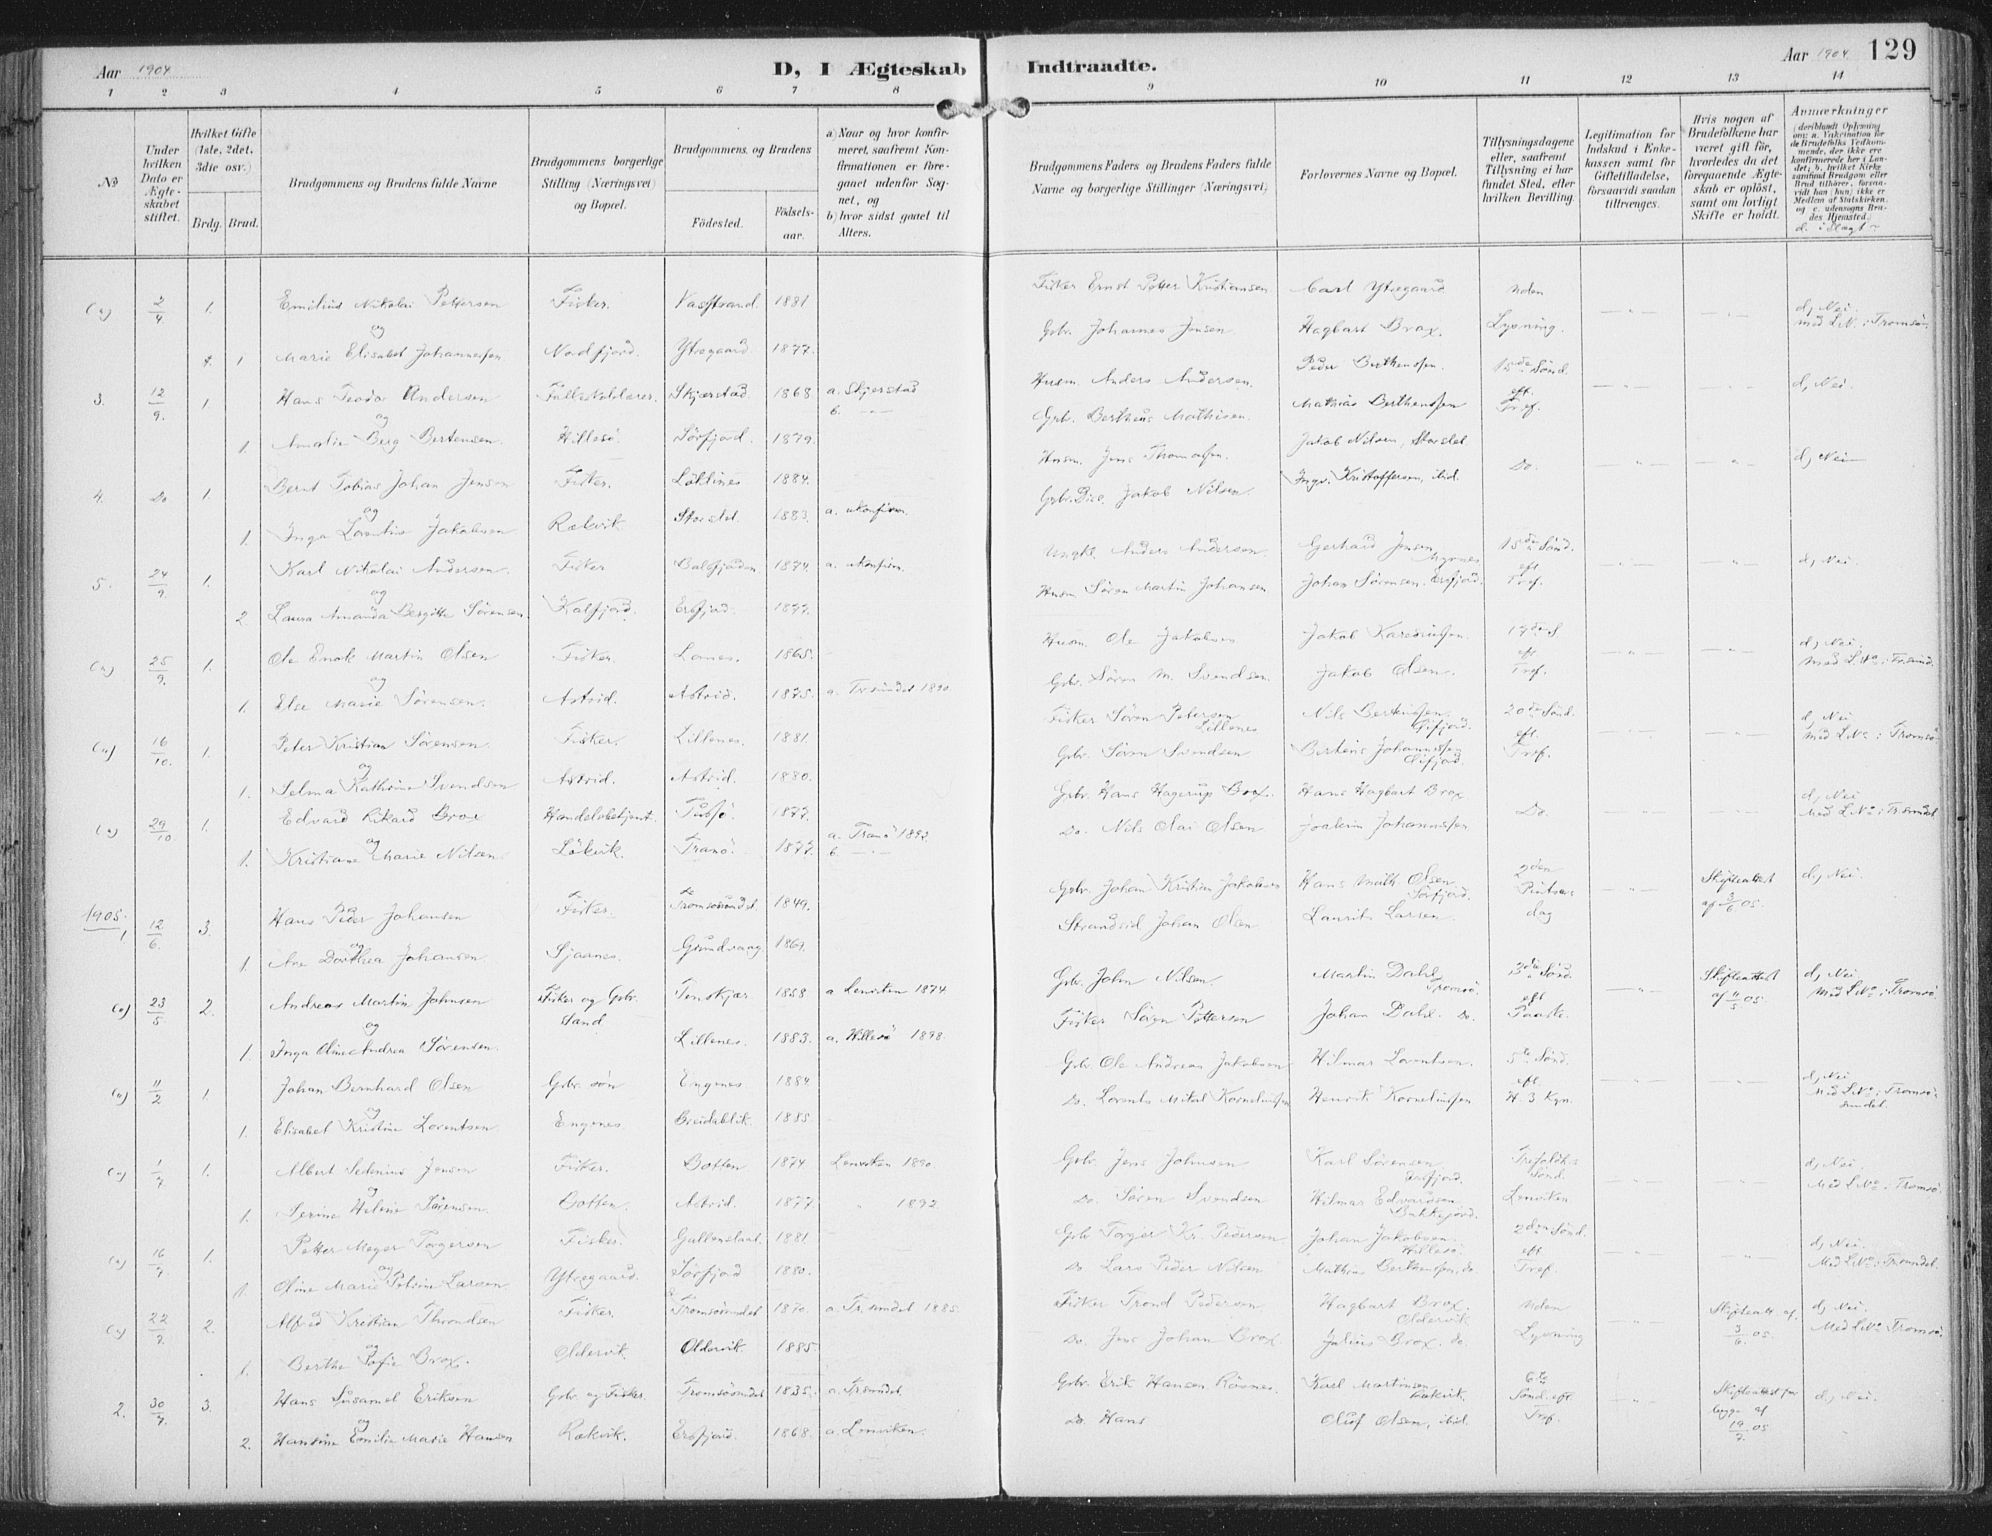 Aar 1904
D, I Ægteskab Indtraadte.
Aar 1904 129
1 2 3 4 5 6 7 8 9 10 11 12 13 14
No
Under hvilken Dato er Ægteskabet stiftet.
Hvilket Gifte (1ste, 2det, 3die osv.)
Brdg. Brud.
Brudgommens og Brudens fulde Navne
Brudgommens borgerlige Stilling (Næringsvei) og Bopæl.
Brudgommens og Brudens
Fødested.
Fødselsaar.
a) Naar og hvor konfirmeret, saafremt Konfirmationen er foregaaet udenfor Sognet, og
b) hvor sidst gaaet til Alters.
Brudgommens Faders og Brudens Faders fulde Navne og borgerlige Stillinger (Næringsvei)
Forlovernes Navne og Bopæl.
Tillysningsdagene eller, saafremt Tillysning ei har fundet Sted, efter hvilken Bevilling.
Legitimation for Indskud i Enkekassen samt for Giftetilladelse, forsaavidt saadan tiltrænges.
Hvis nogen af Brudefolkene har været gift før, hvorledes da det foregaaende Ægteskab er opløst, samt om lovligt Skifte er holdt.
Anmærkninger
(deriblandt Oplysning om: a. Vakcination for de Brudefolks Vedkommende, der ikke ere konfirmerede her i Landet; b. hvilket Kirkesamfund Brudgom eller Brud tilhører, forsaavidt han (hun) ikke er Medlem af Statskirken, og c. udensogns Brudes Hjemsted.
d. i Slægt
(u) 2/4 1. Emilius Nikolai Pettersen Fisker. 1881 Fisker Ernst Petter Kristiansen Carl Ytregaard Uden d, Nei.
og Gbr. Johannes Jensen Hagbart Brox. Lysning. med L.N. i Tromsø.
1 Marie Elisabet Johannessen Ytregaard 1877.
3. 12/9. 1 Hans Teodor Andersen Skjærstad. 1868 a. Skjerstad Husm. Anders Andersen. Peder Berthensen. 15de Sønd. d, Nei.
og b. Gbr. Bertheus Mathisen. Mathias Berthensen eft. Tref.
1. Amalie Berg Bertensen. Hillesø. Sørfjord. 1879.
4. Do 1. Bernt Tobias Johan Jensen Fisker. 1884. Husm. Jens Thomassen. Jakob Nilsen, Storslet Do. d, Nei
og Jakob Nilsen. Ingv. Kristoffersen, ibid.
1. Inga Lorentine Jakobsen Rekvik. Storslet. 1883. a. ukonfirm.
5. 24/9. 1. Karl Nikolai Andersen. Fisker Balsfjorden 1874. a. ukonfirm. Ungk. Anders Andersen Gerhard Jensen 15de Sønd. d, Nei.
og Husm Søren Martin Johansen Johan Sørensen. Ersfjord. eft Tref.
2 Laura Amanda Bergitte Sørensen Kalfjord. Ersfjord. 1877.
(u) 25/9. 1. Ole Enok Martin Olsen Fisker. Lanes. 1865. Husm Ole Jakobsen Jakob d, Nei.
og Gbr. Søren M. Svendsen. Jakob Olsen. eft Tref. med L.No i Tr.sund.
1. Else Marie Sørensen. Astrid. Astrid. 1875. a. Tr.sundet 1890.
(u) 16/10. 1. Peter Kristian Sørensen. Fisker. Lillenes. 1881. Fisker Søren Petersen Lillenes Nils Bertheussen. 20de Sønd. d, Nei
og Gbr. Søren Svendsen Bertheus Johannessen eft. Tref. med L.No i Tromsø
1. Selma Kathrine Svendsen Astrid. Astrid. 1880.
(u) 29/10 1. Edvard Rikard Brox Handelsbetjent. 1877. Gbr. Hans Hagerup Brox. Hans Hagbart Brox Do. d, Nei
og a. Tranø 1892. Do. Nils Olai Olsen Joakim Johannessen Med L.No i Tr.sundet
1. Kristiane Marie Nilsen. Løkvik. Tranø. 1877 b.
1905.
1 12/6. 3. Hans Peder Johansen Fisker. Tromsøsundet. 1849. Gbr. Johan Kristian Jakobsen Hans Math Olsen Sørfjord. 2den Pintsedag Skifteattest af 3/6 05. d, Nei.
og Strandsid. Johan Olsen Laurits Larsen.
1. Ane Dorthea Johansen. Sjaanes. Grundvaag 1869.
(u) 23/5 2. Andreas Martin Johnsen Fisker og Gbr. Tenskjær 1858 a Lenviken 1874 Gbr. John Nilsen. Martin Dahl Tromsø. 3die Sønd. Skifteattest af 11/5 05. d, Nei.
og Fisker Søren Pettersen Johan Dahl. Do. eft Paaske. Med L.No i Tromsø
1. Inga Oline Andrea Sørensen. Lillenes. 1883. a. Hillesø 1898.
(u) 11/2 1. Johan Bernhard Olsen Gbr. søn Engenes 1884 Gbr. Ole Andreas Jakobsen Hilmar Lorentsen. 5te Sønd. d, Nei
og Do. Lorents Mikal Kornelinssen Henrik Kornelinssen eft. H. 3 Kgn. Med L.No i Tromsøsundet.
1. Elisabet Kristine Lorentsen Engenes Breidablik. 1885
(u) 1/7 1. Albert Sedenius Jensen Fisker. Botten 1874 Lenviken 1890. Gbr. Jens Johnsen Karl Sørensen Ersfjord. Trefoldh. Sønd. d, Nei.
og Do. Søren Svendsen Hilmar Edvardsen Bakkejord. Lenviken Med L.No i Tromsø.
1. Serine Heline Sørensen. Botten. Astrid. 1877. " 1892.
(u) 16/7 1. Petter Meyer Torgersen Fisker. 1881 Gbr Torger Kr. Pedersen Johan Jakobsen. Hillesø. 2den Sønd. d, Nei.
og Do Lars Peder Nilsen Mathias Berthensen, do. eft Tref. Med L.No i Tr.sundet.
1. Oline Marie Petrine Larsen Ytregaard. Sørfjord 1880.
(u) 22/7. 2. Alfred Kristian Throndsen Fisker. Tromsøsundet 1870. a. Tr.sundet 1885. Fisker Trond Pedersen Hagbart Brox. Oldervik Uden Skifteatt. af 3/6 05. d, Nei.
og Do. Jens Johan Brox Julius Brox. do. Lysning Med L.No Tromsø.
1. Berthe Sofie Brox. Oldervik. Oldervik 1885.
2. 30/7. 3. Hans Susamel Eriksen Gbr. og Fisker. Tromsøsundet 1835. a. Tr.sundet Gbr. Erik Hansen Rösnes. Karl Martinsen Rekvik. 6te Sønd. eft Tref. Skifteattest for begge af 19/7. 05 d, Nei.
og Do. Hans Oluf Olsen, ibid.
2. Hansine Emilie Marie Hansen Rekvik. Ersfjord. 1868. a. Lenviken.